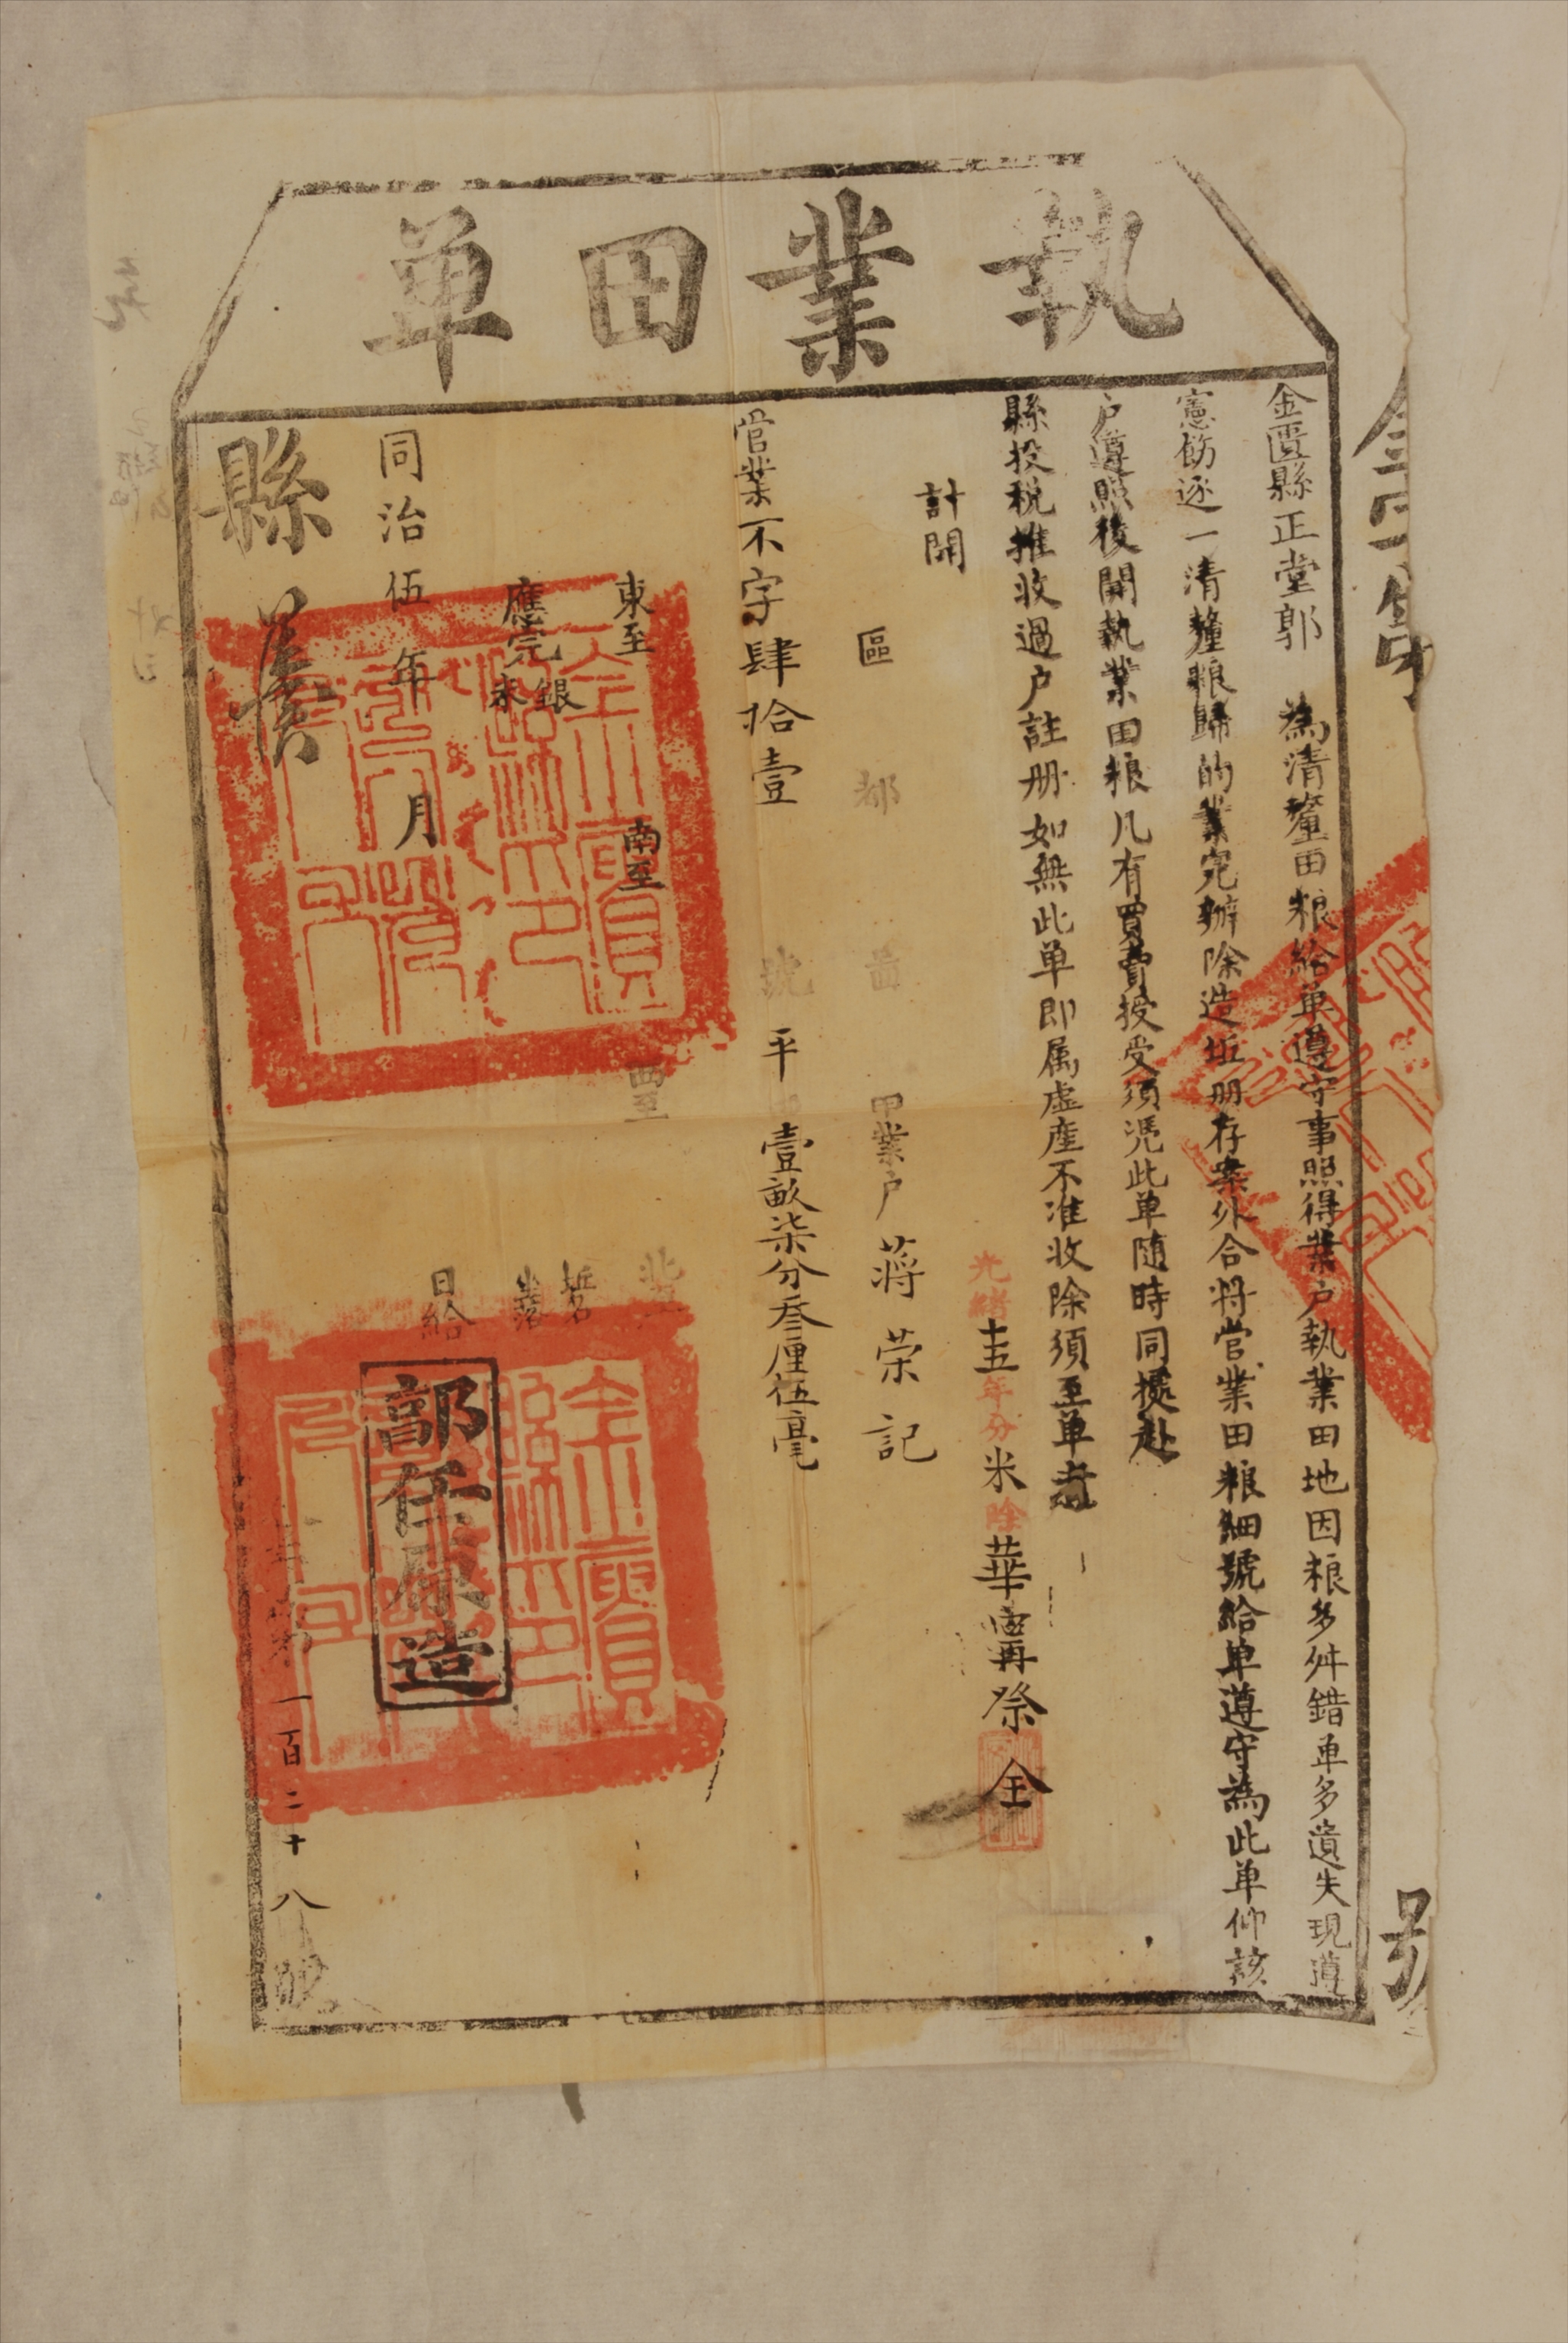 執業田單
金匱縣正堂郭　為清釐田粮給单遵守事照得業戶執業田地因粮多舛錯单多遺失現遵
憲飭逐一清釐粮歸的業完辦除造坵册存案外合將営業田粮細號給单遵守為此单仰該
戶遵照後開執業田粮凡有買賣授受須凴此单随時同契赴
縣投税推收過户註册如無此单即属虛產不准收除須至单者
計開
光緒十五年分米除華再祭全
區　都　啚　甲業户蔣荣記
営業不字肆拾壹號平田壹畝柒分叁厘伍毫
東至　南至　西至　北至
應完銀米
同治伍年月日給
部任原造
縣
一百二十八號